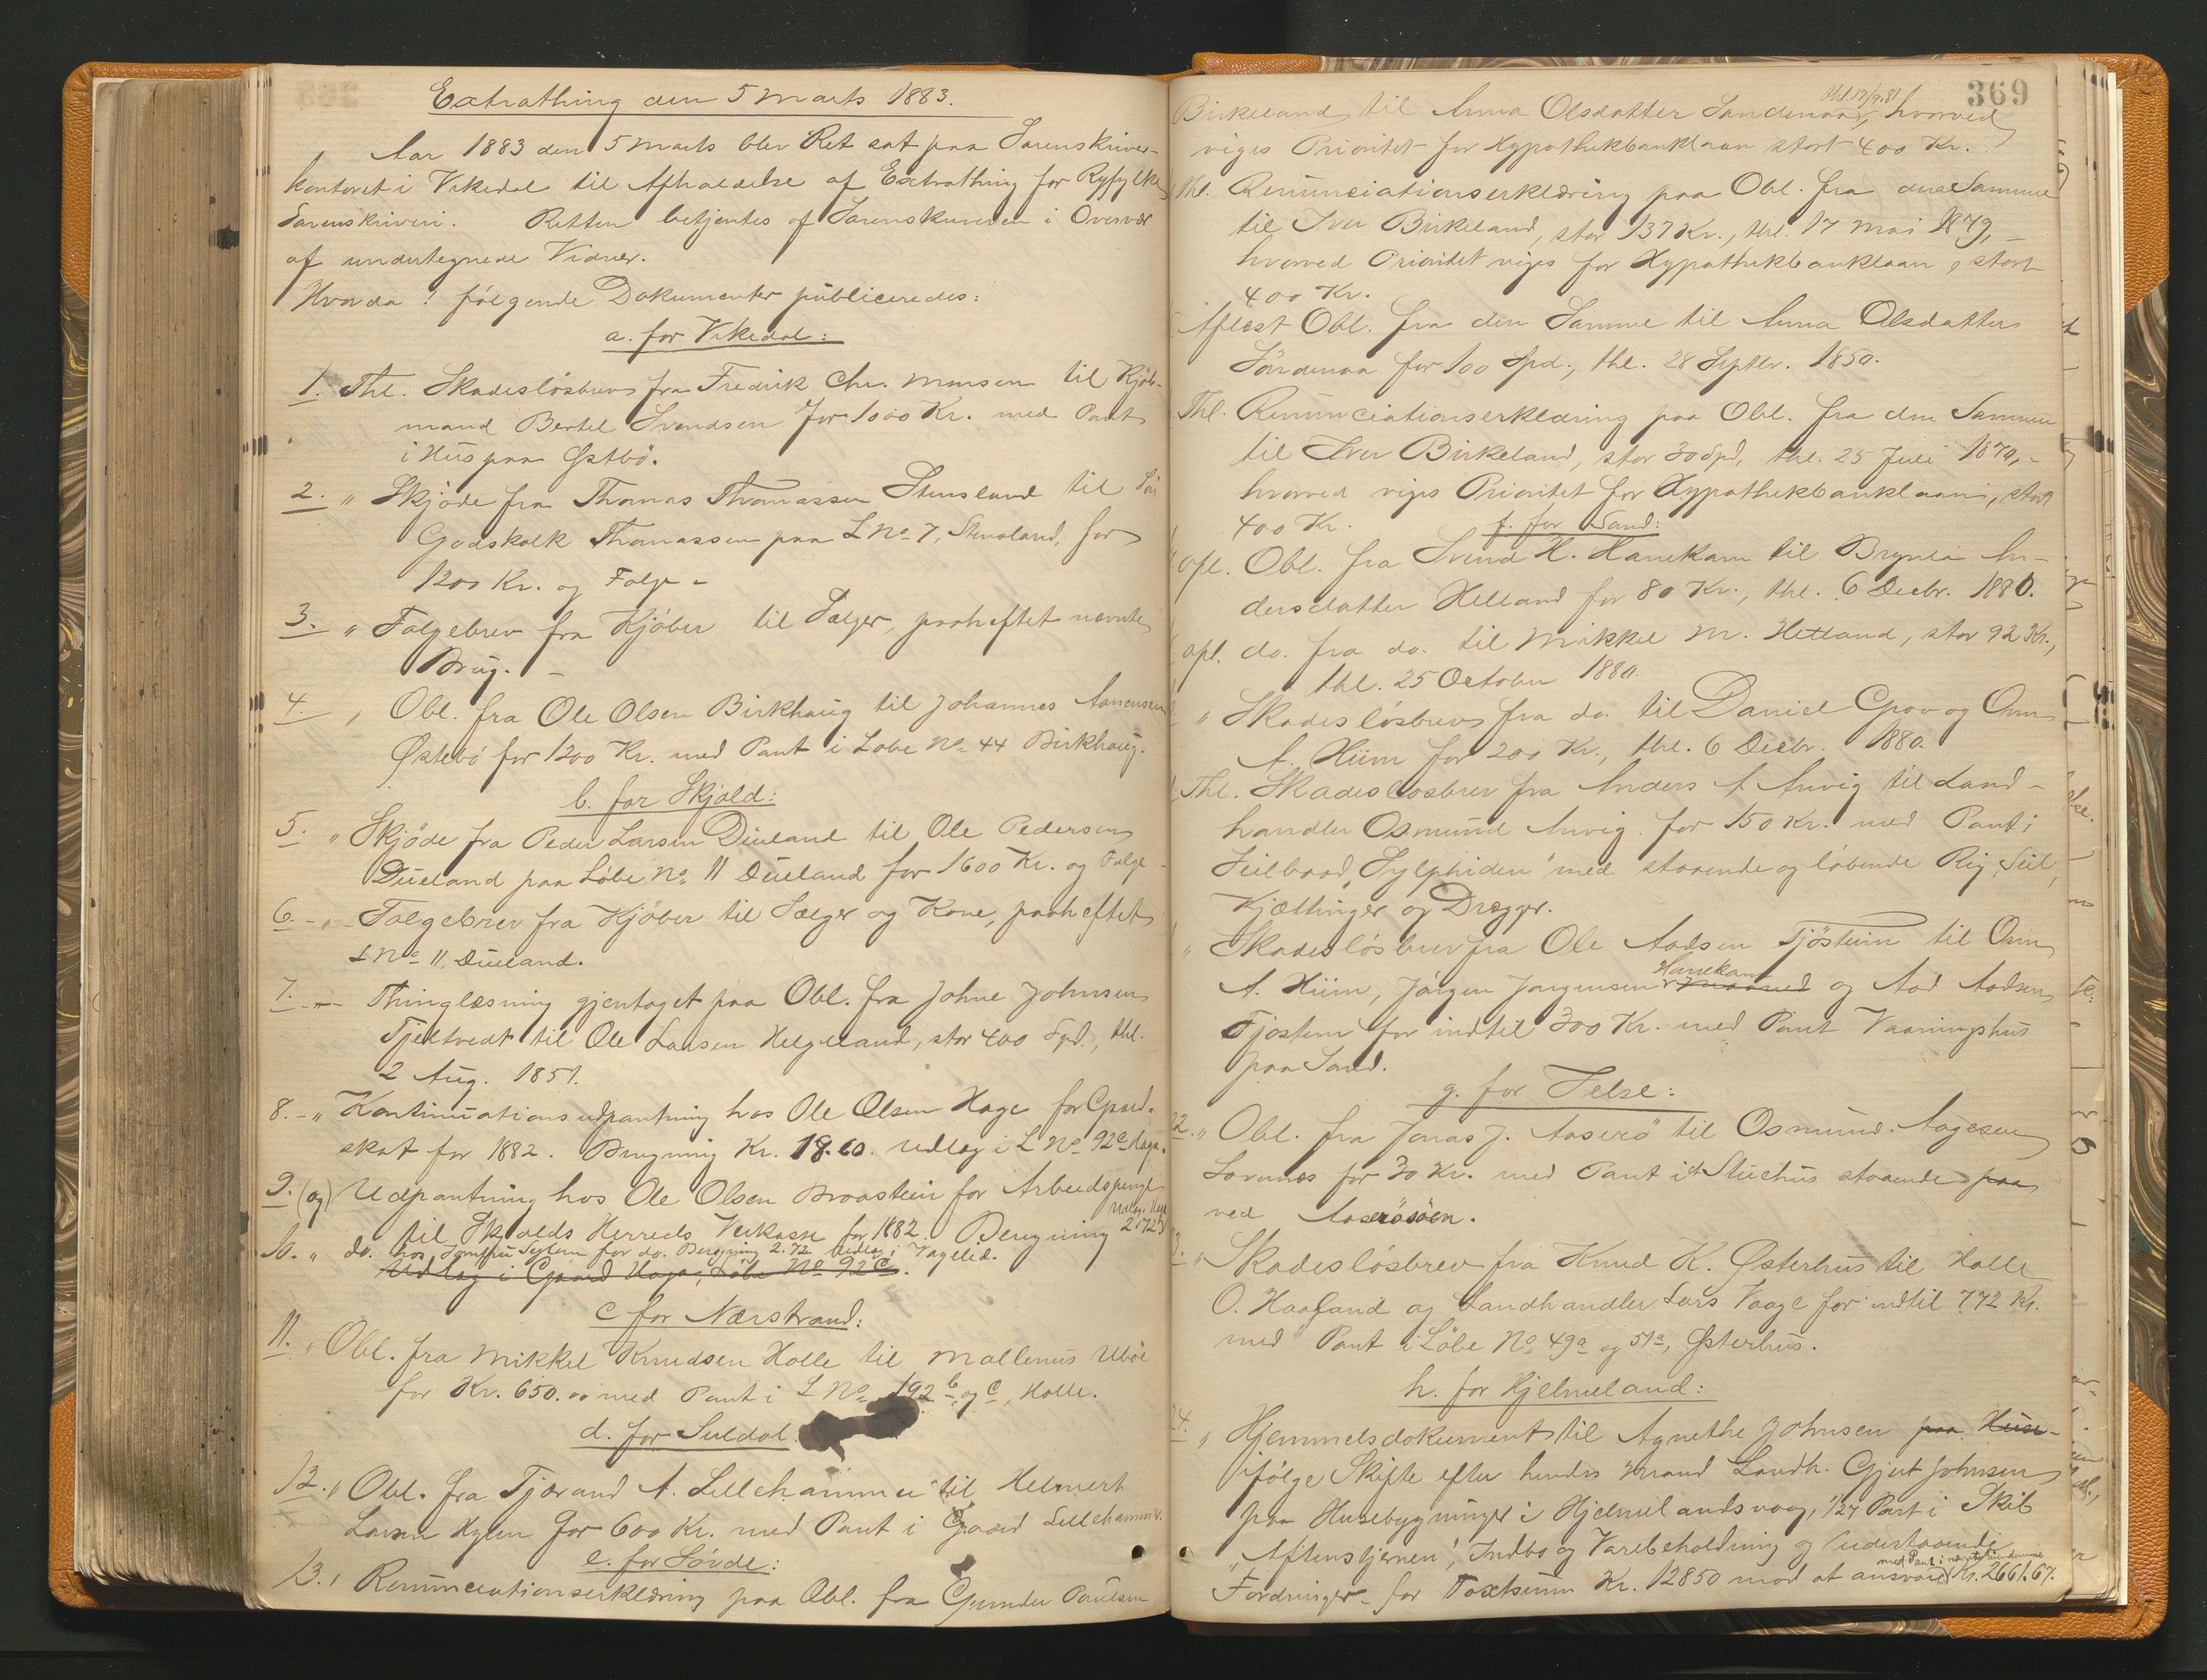 Extrathing den 5 Marts 1883.
Aar 1883 den 5 Marts blev Ret sat paa Sorenskriver-
kontoret i Vikedal til Afholdelse af Extrathing for Ryfylke
Sorenskriveri. Retten betjentes af Sorenskriveren i Overvær
af undertegnede Vidner.
Hvorda: følgende Dokumenter publiceredes:
a. for Vikedal:
1. Thl. Skadesløsbrev fra Fredrik Chr. Monsen til Kjøb-
mand Bertel Svendsen for 1000 Kr. med Pant
i Hus paa Østbö.
2. " Skjöde fra Thomas Thomassen Stensland til Sön
Godskalk Thomassen paa L No 7, Stensland, for
1200 Kr. og Folge -
3. " Folgebrev fra Kjöber til Sælger, paaheftet nævnte
Brug. -
4. " Obl. fra Ole Olsen Birkhaug til Johannes Aanensen
Östebö for 1200 Kr. med Pant i Löbe No 44 Birkhaug.
b. for Skjold:
5. " Skjöde fra Peder Larsen Dueland til Ole Pedersen
Dueland paa Löbe No 11 Dueland for 1600 Kr. og Folge -
6. - " - Folgebrev fra Kjöber til Sælger og Kone, paaheftet
L No 11, Dueland.
7. - " - Thinglæsning gjentaget paa Obl. fra Johne Johnsen
Tjeltvedt til Ole Larsen Helgeland, stor 400 Spd., thl.
2 Aug. 1851.
8. - " Kontinuationsudpantning hos Ole Olsen Hage for Gaard-
skat for 1882. Bergning Kr. 18.60. Udlæg i L No 92c Haga.
9. (og) Udpantning hos Ole Olsen Braastein for Arbeidspenge
Udlæg i Haga
til Skjolds Herreds Veikasse for 1882. Bergning 2.72
10. " do. hos for do. Bergning 2.72 Udlæg i Vagelid.
Udlæg i Gaard Haga, Löbe No 92c.
c for Nærstrand:
11. " Obl. fra Mikkel Knudsen Holle til Mallenus Ubøe
for Kr. 650.00 med Pant i L No 192 b og c, Holle.
d. for Suldal.
12. " Obl. fra Tjærand A. Lillehammer til Helmert
Larsen Hylen for 600 Kr. med Pant i Gaard Lillehammer.
e. for Søvde:
13. " Renunciationserklæring paa Obl. fra Gunder Paulsen
369
thl. 17/9.81
Birkeland til Anna Olsdatter Sandenaa, hvorved
viges Prioritet for Hypothekbanklaan stort 400 Kr.
Thl. Renunciationserklæring paa Obl. fra den Samme
til Iver Birkeland, stor 137 Kr., thl. 17 Mai 1879, -
hvorved Prioritet viges for Hypothekbanklaan, stort
400 Kr.
Aflæst Obl. fra den Samme til Anna Olsdatter
Søndenaa for 100 Spd., thl. 28 Septbr. 1850.
Thl. Renunciationserklæring paa Obl. fra den Samme
til Iver Birkeland, stor 30 Spd, thl. 25 Juli 1870, -
hvorved viges Prioritet for Hypothekbanklaan, stort
400 Kr.
f. for Sand:
afl. Obl. fra Svend H. Hanekam til Brynla An-
dersdatter Helland for 80 Kr., thl. 6 Decbr. 1880.
afl. do. fra do. til Mikkel M. Hetland, stor 92 Kr.,
thl. 25 October 1880.
" Skadesløsbrev fra do. til Daniel Grov og Orm
A. Hiim for 200 Kr., thl. 6 Decbr. 1880.
Thl. Skadesløsbrev fra Anders A Anvig til Land-
handler Osmund Anvig for 150 Kr. med Pant i
Seilbaad "Sylphiden" med staaende og løbende Rig, Seil,
Kjættinger og Drægger.
" Skadesløsbrev fra Ole Aadsen Tjöstem til Orm
Hanekam
A. Hiim, Jörgen Jørgensen og Aad Aadsen
Tjöstem for indtil 300 Kr. med Pant Vaaningshus
paa Sand.
g. for Jelse:
22. " Obl. fra Jonas J. Aaserö til Osmund Aagesen
Lovenes for 30 Kr. med Pant i et Stuehus staaende paa
ved Aaseröåen.
" Skadesløsbrev fra Knud K. Østerhus til Halle
O. Haaland og Landhandler Lars Vaage for indtil 772 Kr.
med Pant i Löbe No 49a og 51a, Østerhus.
h. for Hjelmeland:
24. " Hjemmelsdokument til Agnethe Johnsen paa Huse-
følge Skifte efter hendes Mand Landh. Gjert Johnsen
paa Husebygninger i Hjelmelandsvaag, 1/27 Part i Skib
"Aftenstjernen", Indbo og Varebeholdning og Udestaaende
med Pant i nævnte Eiendomme
Fordringer for Taxtsum Kr. 12850 mod at ansvare Kr. 2661.67.